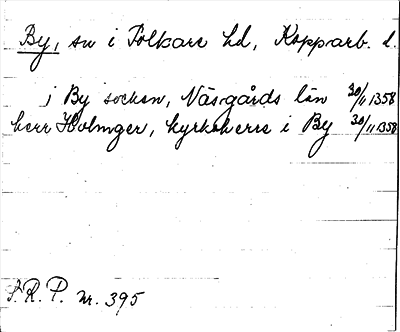 By, sn i Folkare hd, Kopparb. l.
j By soczsn, Näsgårds län 30/11 1358
herr Holmger, kyrkoherre i By 30/11 1358
S.R.P. nr. 395